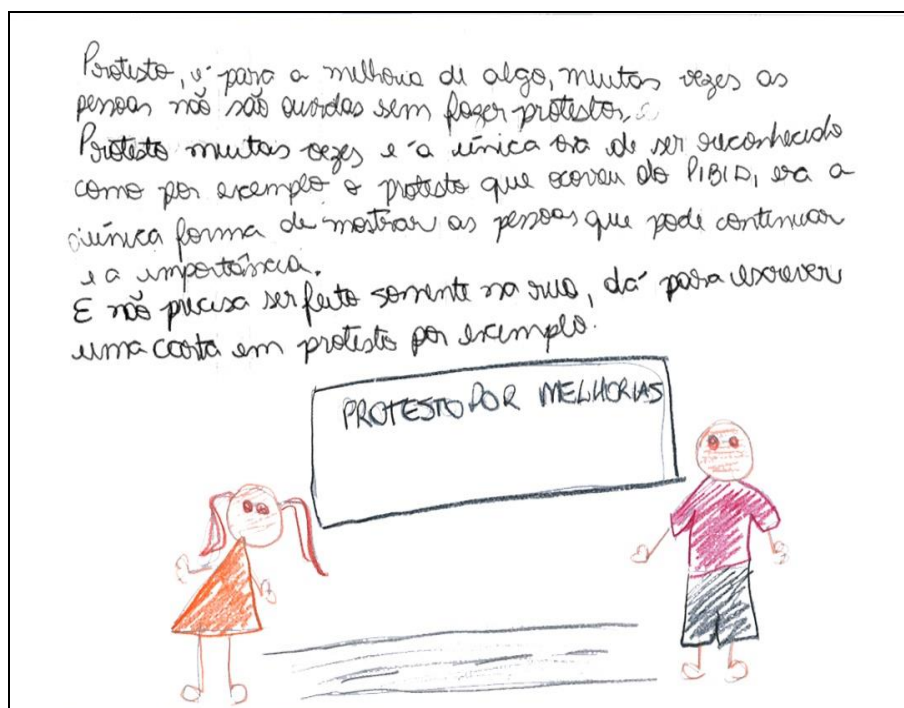 Protesto, é para a melhoria de algo, muitas vezes as
pessoas não são ouvidas sem fazer protestos,
Protesto muitas vezes e a única de ser reconhecido
como por exemplo o protesto que ocoreu do PIBID, era a
única forma de mostrar as pessoas que pode continuar
e a importância.
E não precisa ser feito somente na rua, dá para escrever
uma carta em protesto por exemplo.
PROTESTO POR MELHORIAS